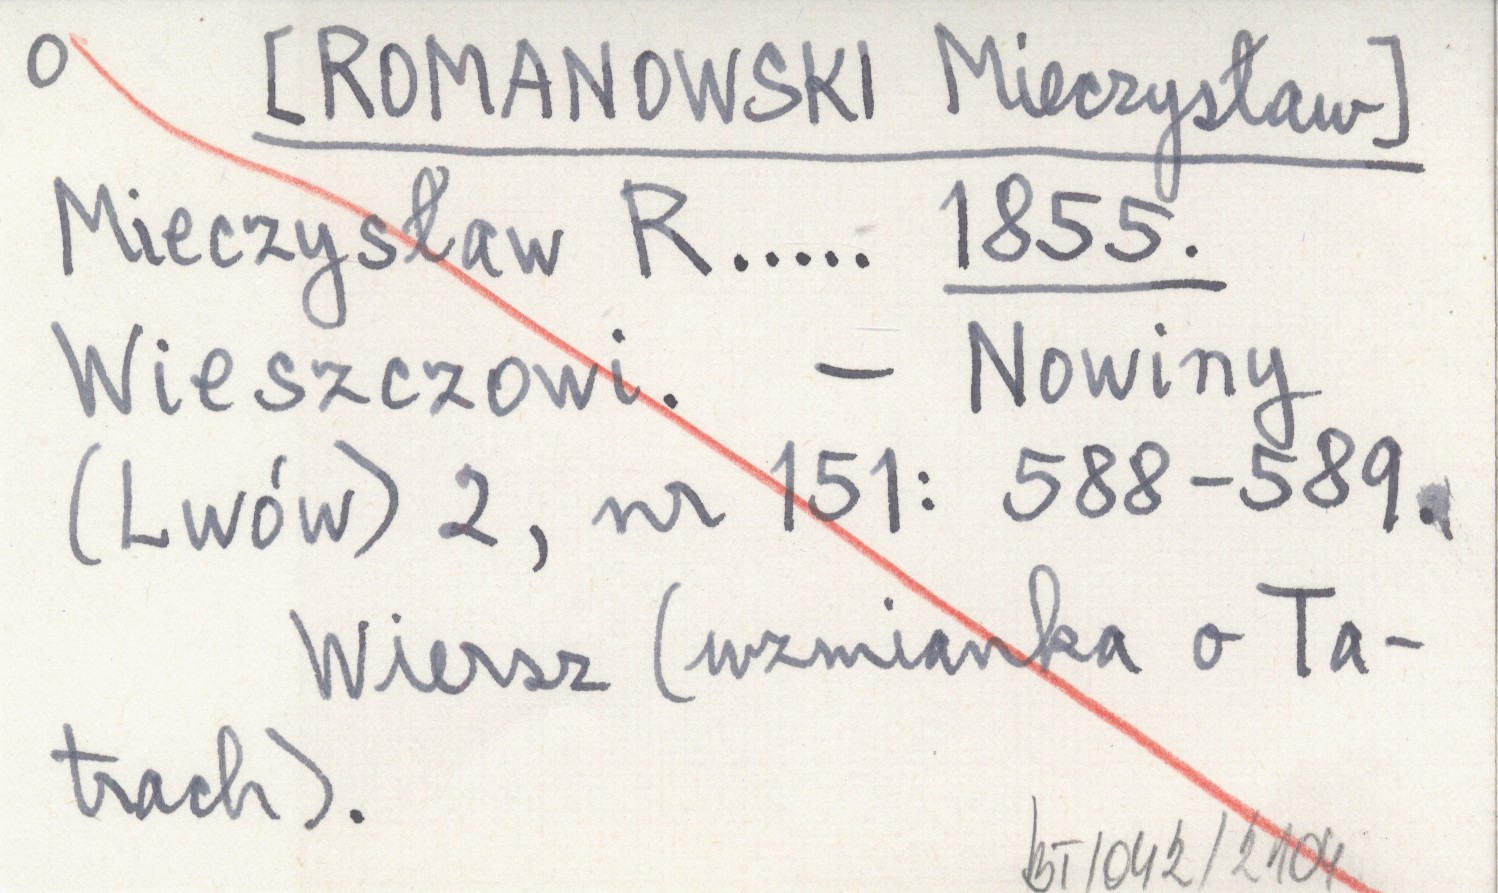 O [ROMANOWSKI Mieczysław]
Mieczysław R..... 1855.
Wieszczowi. – Nowiny
(Lwów) 2, nr 151: 588-589.
Wiersz (wzmianka o Ta-
trach).
BT/042/2104